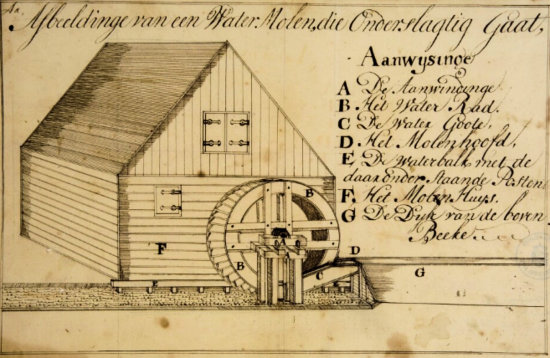 Afbeeldinge van een Water Molen, die Onderslagtig Gaat,
Aanwysinge
A De Aanwindinge
B. Hét Water Rad.
C De Water Goote.
D. Hét Molenhoofd.
E De Waterbalk met de
daar onder Staande Posten
F. Hét Molen Huys.
G De Dyk van de boven
Beeke.
B
F
B
C
D
G